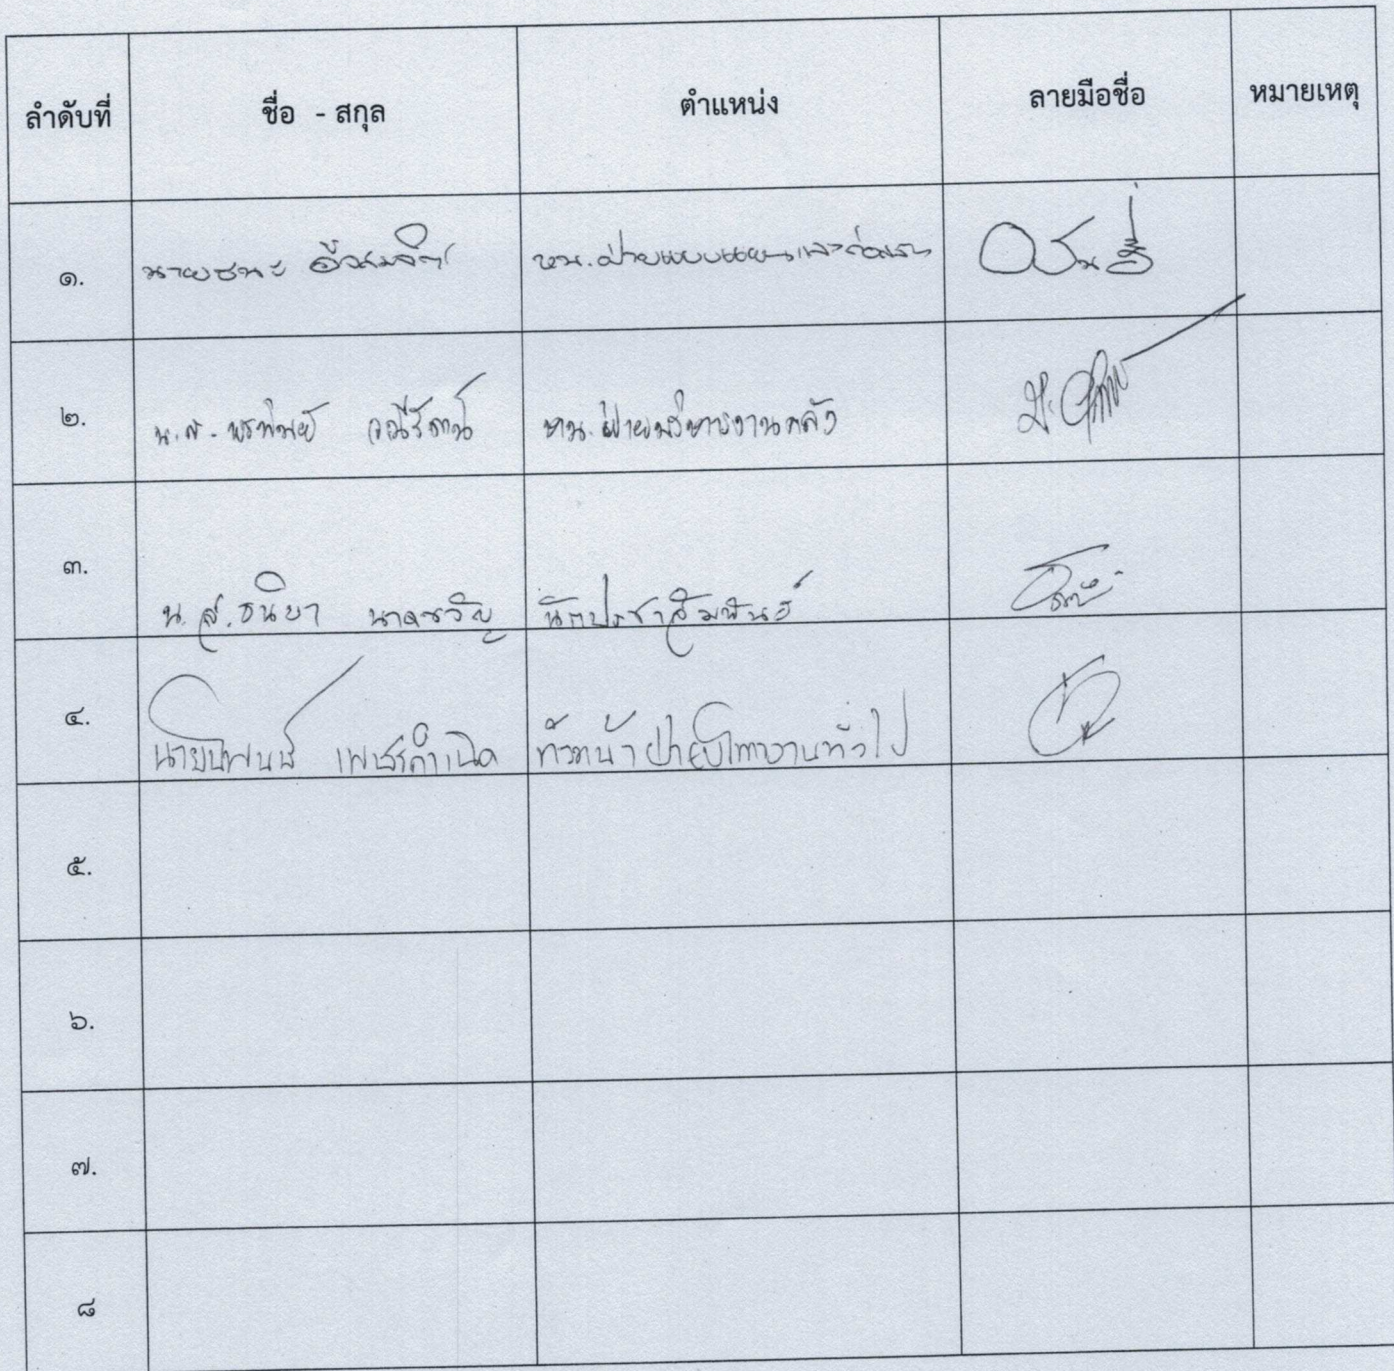 ลำดับที่ ชื่อ - สกุล ตำแหน่ง ลายมือชื่อ หมายเหตุ
๑. นายชนะ หน.ฝ่ายแบบแผนและก่อสร้าง
๒. น.ส. พรทิพย์ หน.ฝ่ายบริหารงานคลัง
๓. น.ส. ธนิยา นาคขวัญ นักประชาสัมพันธ์
๔. นายนิพนธ์ เพชรกำเนิด หัวหน้าฝ่ายบริหารงานทั่วไป
๕.
๖.
๗.
๘